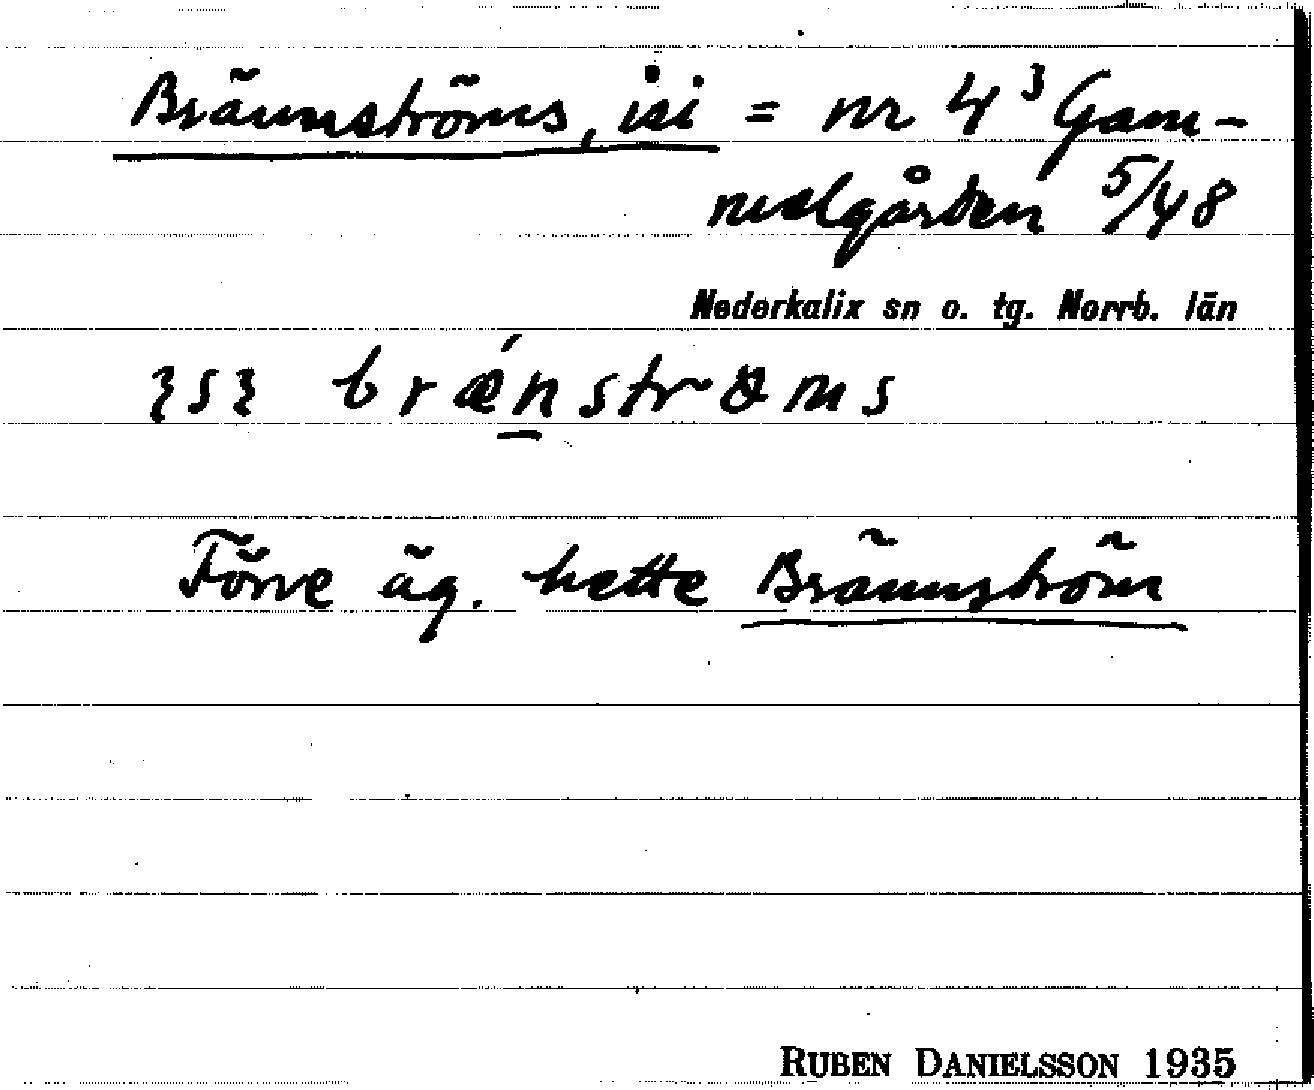 Brännströms, isi = nr 4³ Gam-
melgården 5/48
Nederkalix sn o. tg. Norrb. län
brǽnstrɷms
Förre äg. hette Brännström
RUBEN DANIELSSON 1935